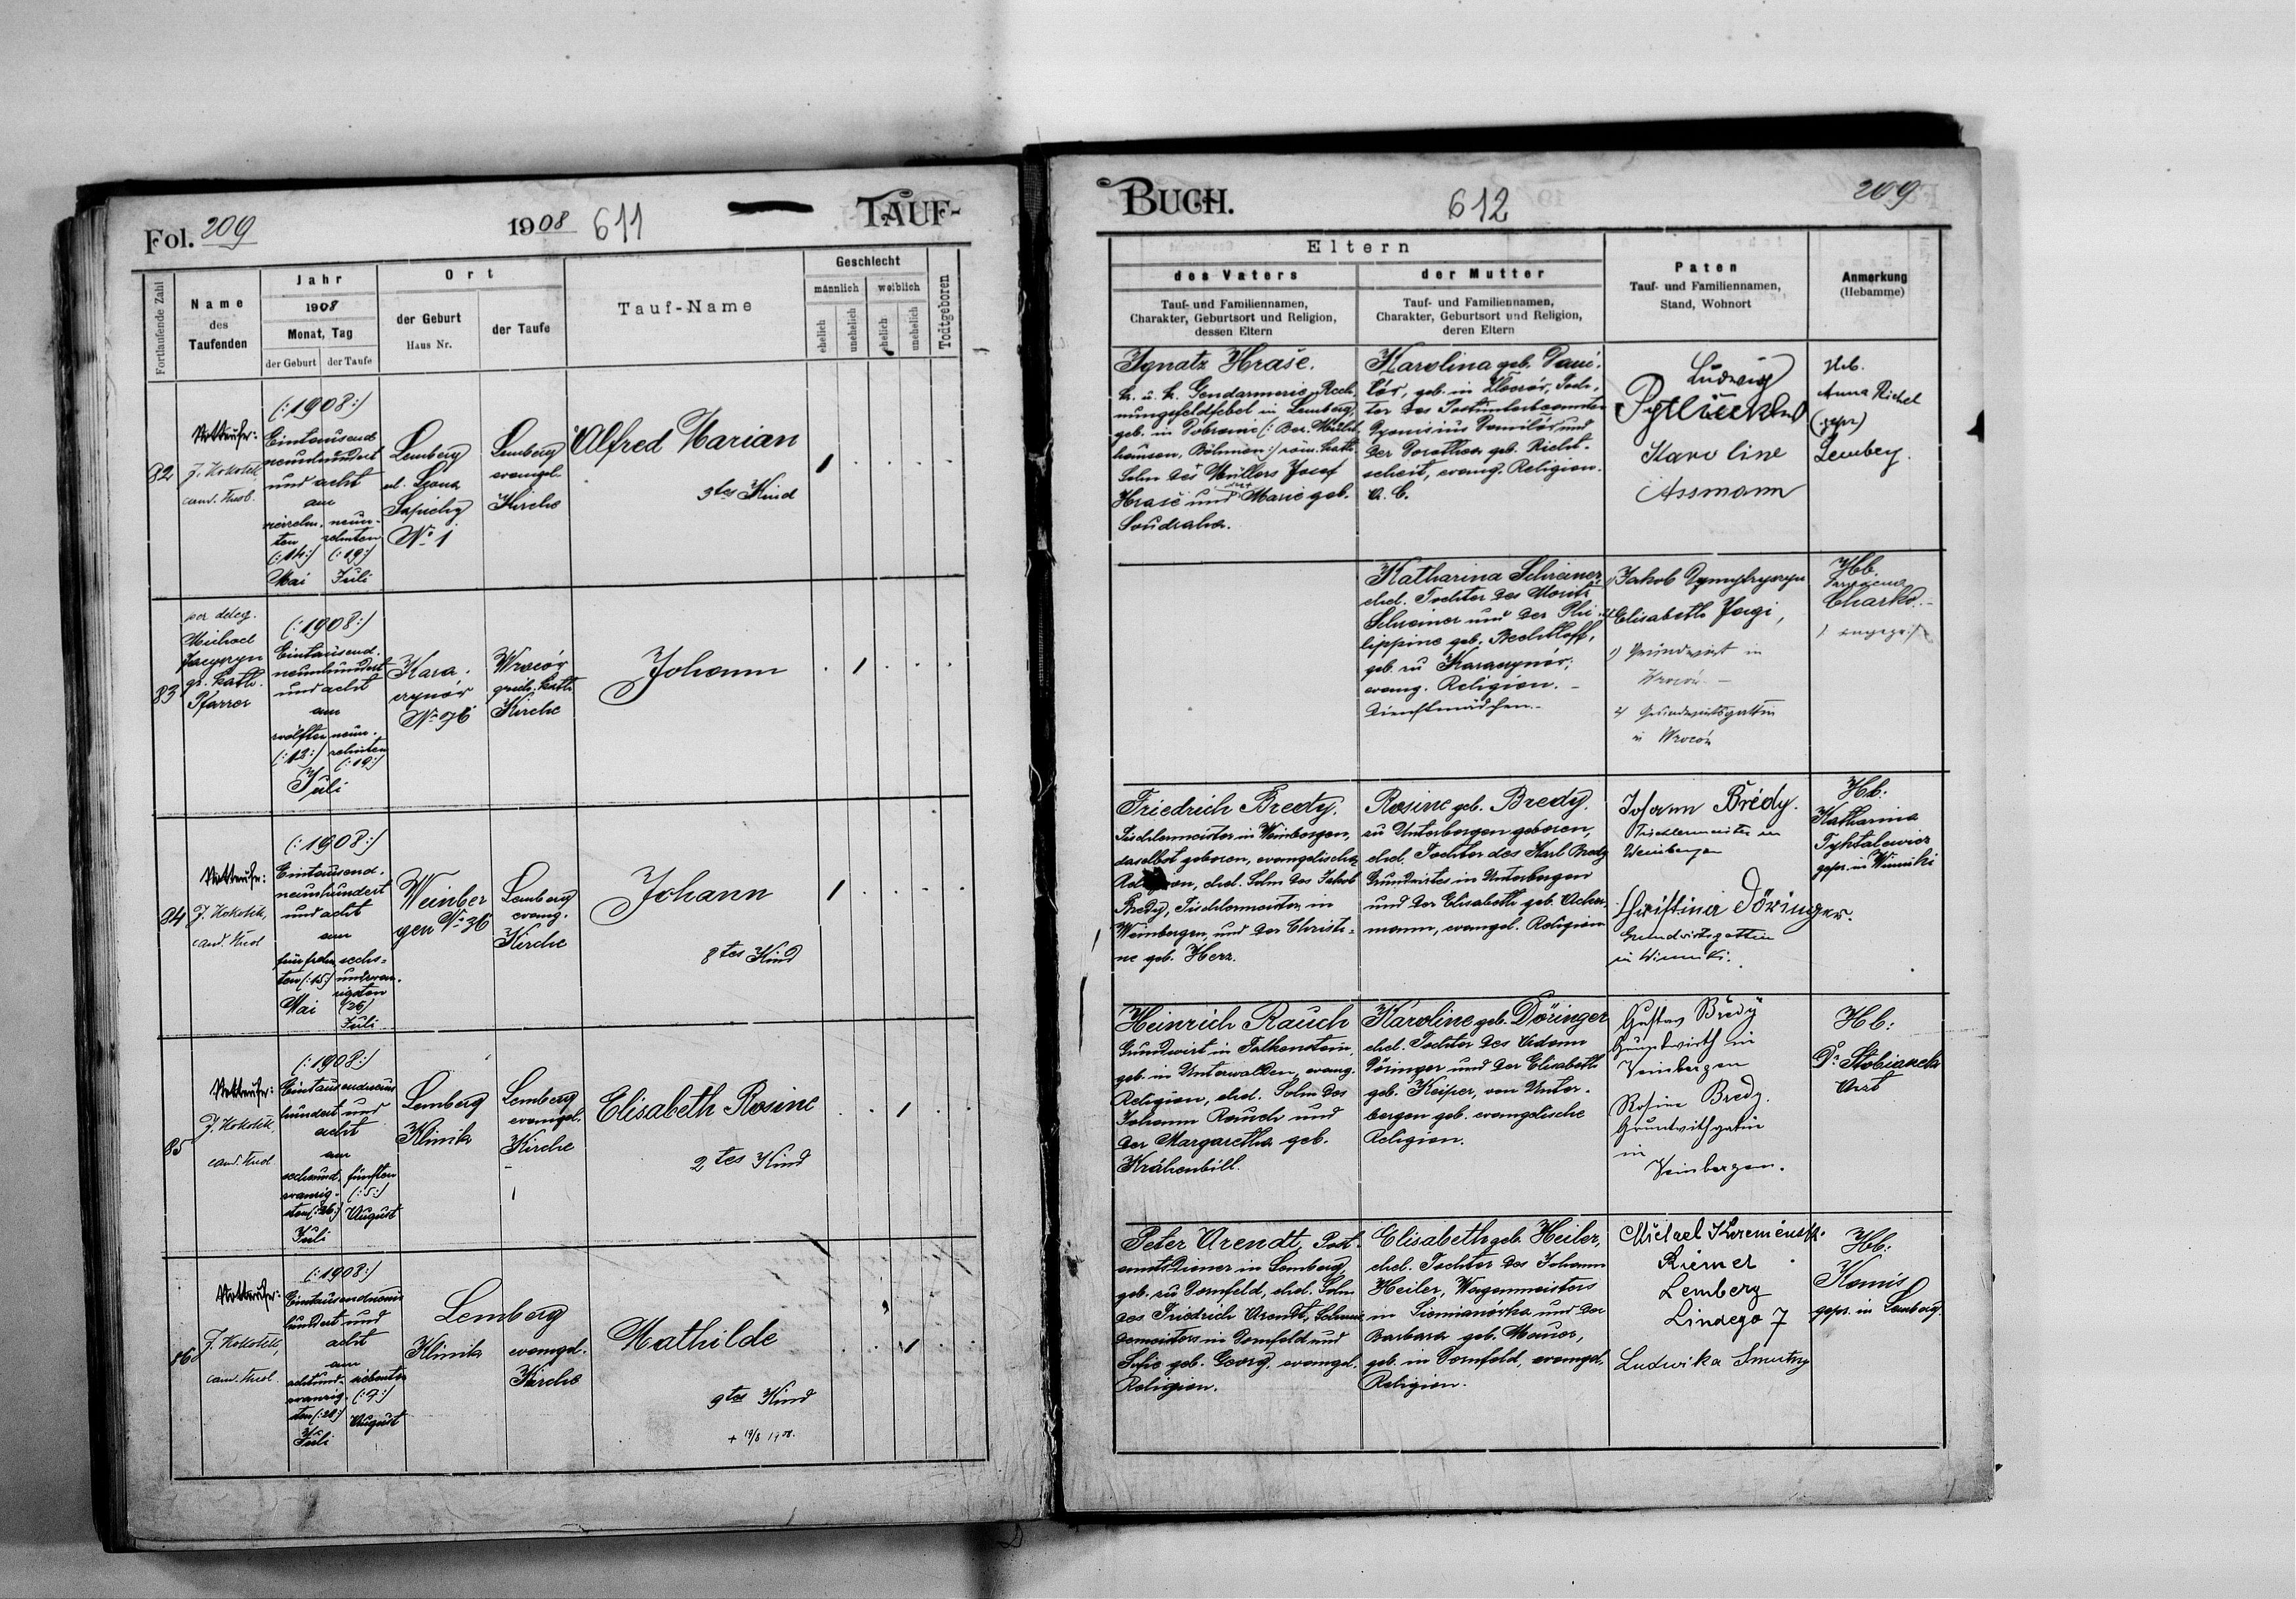 Fol. 209
1908
611
TAUF-
Fortlaufende Zahl
Name
des
Taufenden
Jahr
1908
Monat, Tag
der Geburt
der Taufe
Ort
der Geburt
Haus Nr.
der Taufe
Tauf-Name
Geschlecht
männlich
weiblich
ehelich
unehelich
ehelich
unehelich
Todtgeboren
82
J. Kokotek,
cand.
(:1908:)
Eintausend
neunhundert
und acht
am
vierzehn-
ten
(:14:)
Mai
neun-
zehnten
(:19:)
Juli
Lemberg
ul. Leona
Sapiehy
No 1
Lemberg
evangel.
Kirche
Alfred Marian
3tes Kind
83
per deleg.
Michael
gr. kath.
Pfarrer
(:1908:)
Eintausend.
neunhundert
und acht
am
zwölften
(:12:)
neun-
zehnten
(:19:)
Juli
Kara-
czynów
No 96
Wroców
griech. kath.
Kirche
Johann
84
J. Kokotek,
cand.
(:1908:)
Eintausend.
neunhundert
und acht
am
fünfzehn
ten (:15:)
Mai
sechs-
undzwan-
zigsten
(26)
Juli
Weinber
gen No 36
Lemberg
evang.
Kirche
Johann
8tes Kind
85
J. Kokotek,
cand.
(:1908:)
Eintausendneun
hundert und
acht
am
sechsund
zwanzig-
sten (:26:)
Juli
fünften
(:5:)
August
Lemberg
Klinik
Lemberg
evangel.
Kirche
Elisabeth Rosine
2tes Kind
86
J. Kokotek,
cand.
(:1908:)
Eintausendneun
hundert und
acht
am
achtund-
zwanzig-
sten (:28:)
Juli
siebenten
August
Lemberg
Klinik
evangel.
Kirche
Mathilde
9tes Kind
+ 19/8 1908.
BUCH.
612
209
Eltern
des Vaters
Tauf- und Familiennamen,
Charakter, Geburtsort und Religion,
dessen Eltern
der Mutter
Tauf- und Familiennamen,
Charakter, Geburtsort und Religion,
deren Eltern
Paten
Tauf- und Familiennamen,
Stand, Wohnort
Anmerkung
(Hebamme)
Ignatz Hraše.
k. u. k. Gendarmerie Rech-
nungsfeldfebel in Lemberg,
geb. in
Böhmen:) röm. kath.
Sohn des Müllers Josef
Hraše und Marie geb.
Soudraha.
Karolina geb.
geb. in
ter des Postunterbeamten
Dyonisius und
der Dorothea geb.
evang. Religion.
A. C.
Ludwig
Karoline
Assmann
Heb.
Anna Richel
(gepr)
Lemberg.
Katharina Schreiner,
ehel. Tochter des Moritz
Schreiner und der Phi-
lippine geb. Bechtloff,
geb. zu Karaczynów,
evang. Religion. -
Dienstmädchen.-
1) Jakob
2) Elisabeth Jagi,
1) Grundwirt in
Wroców -
2) Grundwirtsgattin
in Wroców
Hb.
Charko. -
Friedrich Bredy,
Tischlermeister in Weinbergen,
daselbst geboren, evangelischer
Religion, ehel. Sohn des Jakob
Bredy, Tischlermeister in
Weinbergen, und der Christi-
ne geb. Herz.
Rosine geb. Bredy.
zu Unterbergen geboren,
ehel. Tochter des Karl Bredy
Grundwirtes in Unterbergen
und der Elisabeth geb. Acher-
mann, evangel. Religion
Johann Brédy.
Tischlermeister in
Weinbergen
Christina Döringer.
Grundwirtsgattin
in Winniki.
Hb:
Katharina
Tyhtalewicz
gepr. in Winniki
Heinrich Rauch
Grundwirt in Falkenstein,
geb. in Unterwalden, evang.
Religion, ehel. Sohn des
Johann Rauch und
der Margaretha geb.
Krähenbill.
Karoline geb. Döringer
ehel. Tochter des Adam
Döringer und der Elisabeth
geb. Keiper, von Unter-
bergen geb. evangelische
Religion.
Gustav Bredy
Grundwirth in
Weinbergen
Rosina Bredy.
in
Weinbergen.
Hb:
Dr.
Arzt
Peter Arendt, Post-
amtsdiener in Lemberg,
geb. zu Dornfeld, ehel. Sohn
des Friedrich Arendt, Schmie-
demeisters in Dornfeld und
Sofie geb. Georg, evangel.
Religion.
Elisabeth geb. Heiler,
ehel. Tochter des Johann
Heiler, Wagenmeisters
in Siemianówka und der
Barbara geb. Mauer,
geb. in Dornfeld, evangel.
Religion.
Michael
Riemer
Lemberg
Lindego 7
Ludwika Smutny
Hb:
Konis
gepr. in Lemberg.